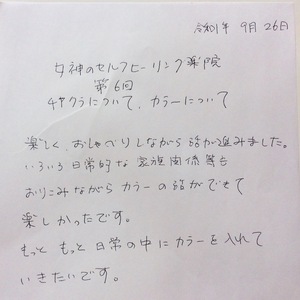 令和1年 9月26日
女神のセルフヒーリング薬院
第6回
チャクラについて、カラーについて
楽しく、おしゃべりしながら話が進みました。
いろいろ日常的な家族関係等も
おりこみながらカラーの話ができて
楽しかったです。
もっともっと日常の中にカラーを入れて
いきたいです。